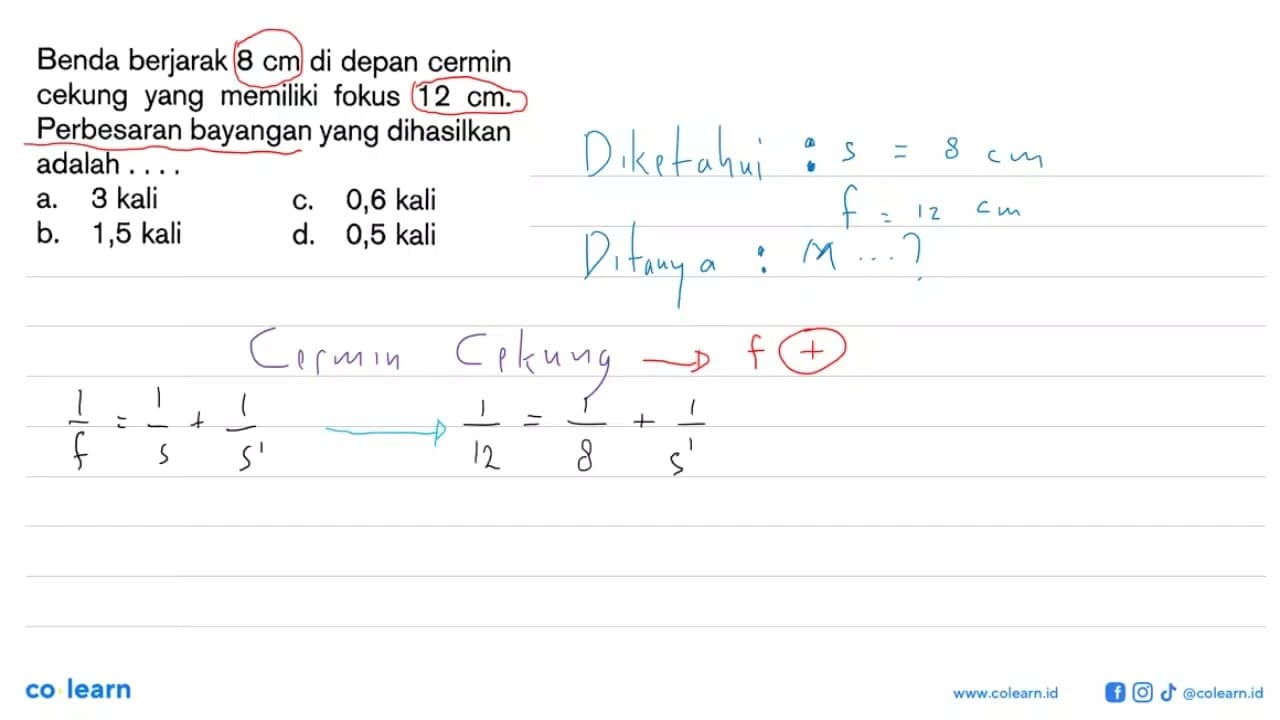 Benda berjarak 8 cm di depan cermin
cekung yang memiliki fokus 12 cm.
Perbesaran bayangan yang dihasilkan
adalah . . . .
a. 3 kali c. 0,6 kali
b. 1,5 kali d. 0,5 kali
Diketahui : s = 8 cm
f = 12 cm
Ditanya : M ... ?
Cermin Cekung → f +
1/f = 1/s + 1/s' → 1/12 = 1/8 + 1/s'
co learn
www.colearn.id @colearn.id